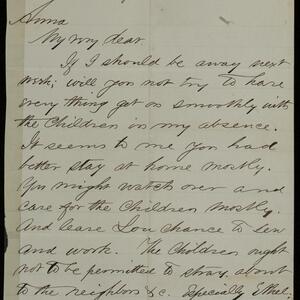 Anna
My very dear.
If I should be away next
week; will you not try to have
every thing get on smoothly with
the Children in my absence.
It seems to me you had
better stay at home mostly.
You might watch over and
care for the Children mostly.
And leave Lou chance to Sew
and work. The Children ought
not to be permitted to stray about
to the neighbors &c. Especially Ethel